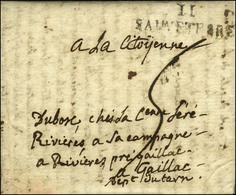 11
SAINT-ETIENNE
A La Citoyenne
Duborc, chés La Cenne Seré-
Rivières a Sa Campagne
a Rivières près gaillac
a Gaillac
Dépt Du tarn